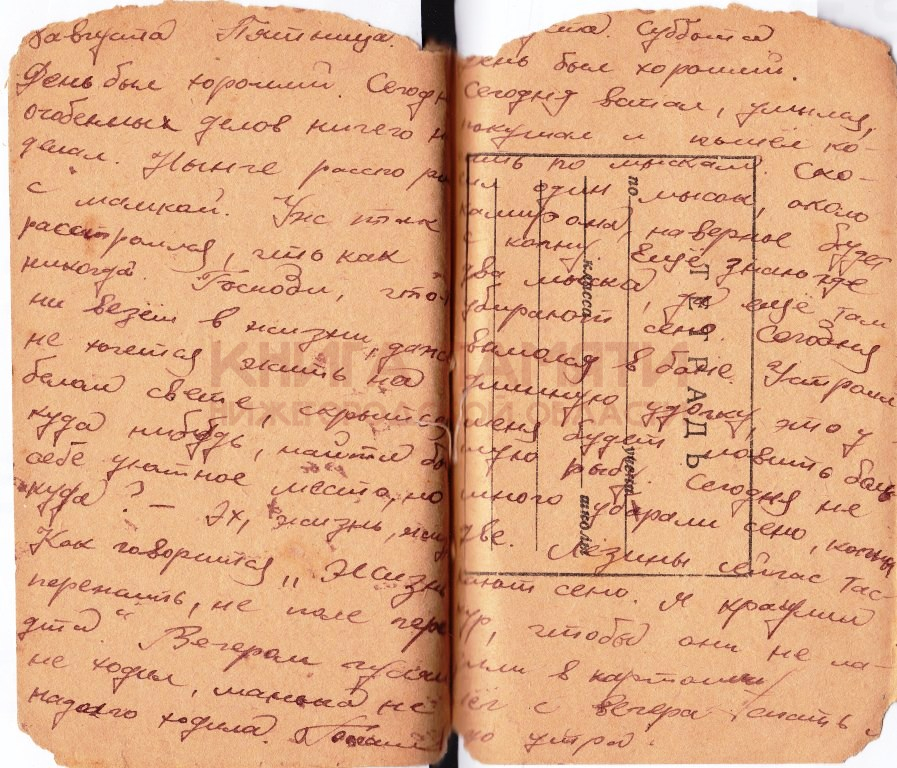 августа Пятница.
День был хороший. Сегодн
особенных делов ничего н
делал. Нынче расспо
с мамкой. Уж так
расстроился, что как
никогда. Господи, что
ни везёт в жизни, даже
не хочется жить на
белом свете, скрыться
куда нибудь, найти бы
себе уютное место, но
куда? — Эх, жизнь,
Как говорится, „Жизнь
пережить, не поле пере
дти“ Вечером
не ходил, мамка не
надолго ходила.
ста. Суббота
ень был хороший.
Сегодня встал, умылся,
покушал и пошёл ко-
сить по мыскам. Ско-
сил один мысок, около
наверное будет
с копну. Ещё знаю где
два мыска, да ещё там
убирают сено. Сегодня
вымылся в бане. Устроил
длинную удочку, это у
меня будет ловить боль
шую рыбу. Сегодня не
много убрали сено, копны
две. Лезины сейчас тас-
кают сено. Я
кур, чтобы они не ла-
зили в картошку
Лёг с вечера спать
до утра.
ТЕТРАДЬ
по
класса
учени
школы
КНИГА ПАМЯТИ
НИЖЕГОРОДСКОЙ ОБЛАСТИ